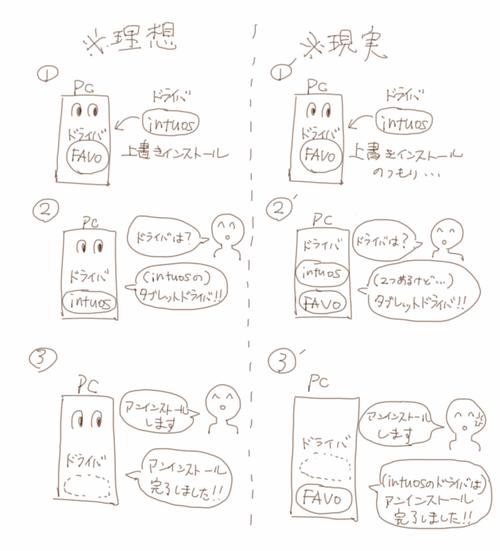 ※理想
①
PC
ドライバ
FAVO
ドライバ
intuos
上書きインストール
②
PC
ドライバ
intuos
ドライバは?
(intuosの)
タブレットドライバ!!
③
PC
ドライバ
アンインストール
します
アンインストール
完了しました!!
※現実
①'
PC
ドライバ
FAVO
ドライバ
intuos
上書きインストール
のつもり…
②'
PC
ドライバ
intuos
FAVO
ドライバは?
(2つあるけど…)
タブレットドライバ!!
③'
PC
ドライバ
FAVO
アンインストール
します
(intuosのドライバは)
アンインストール
完了しました!!